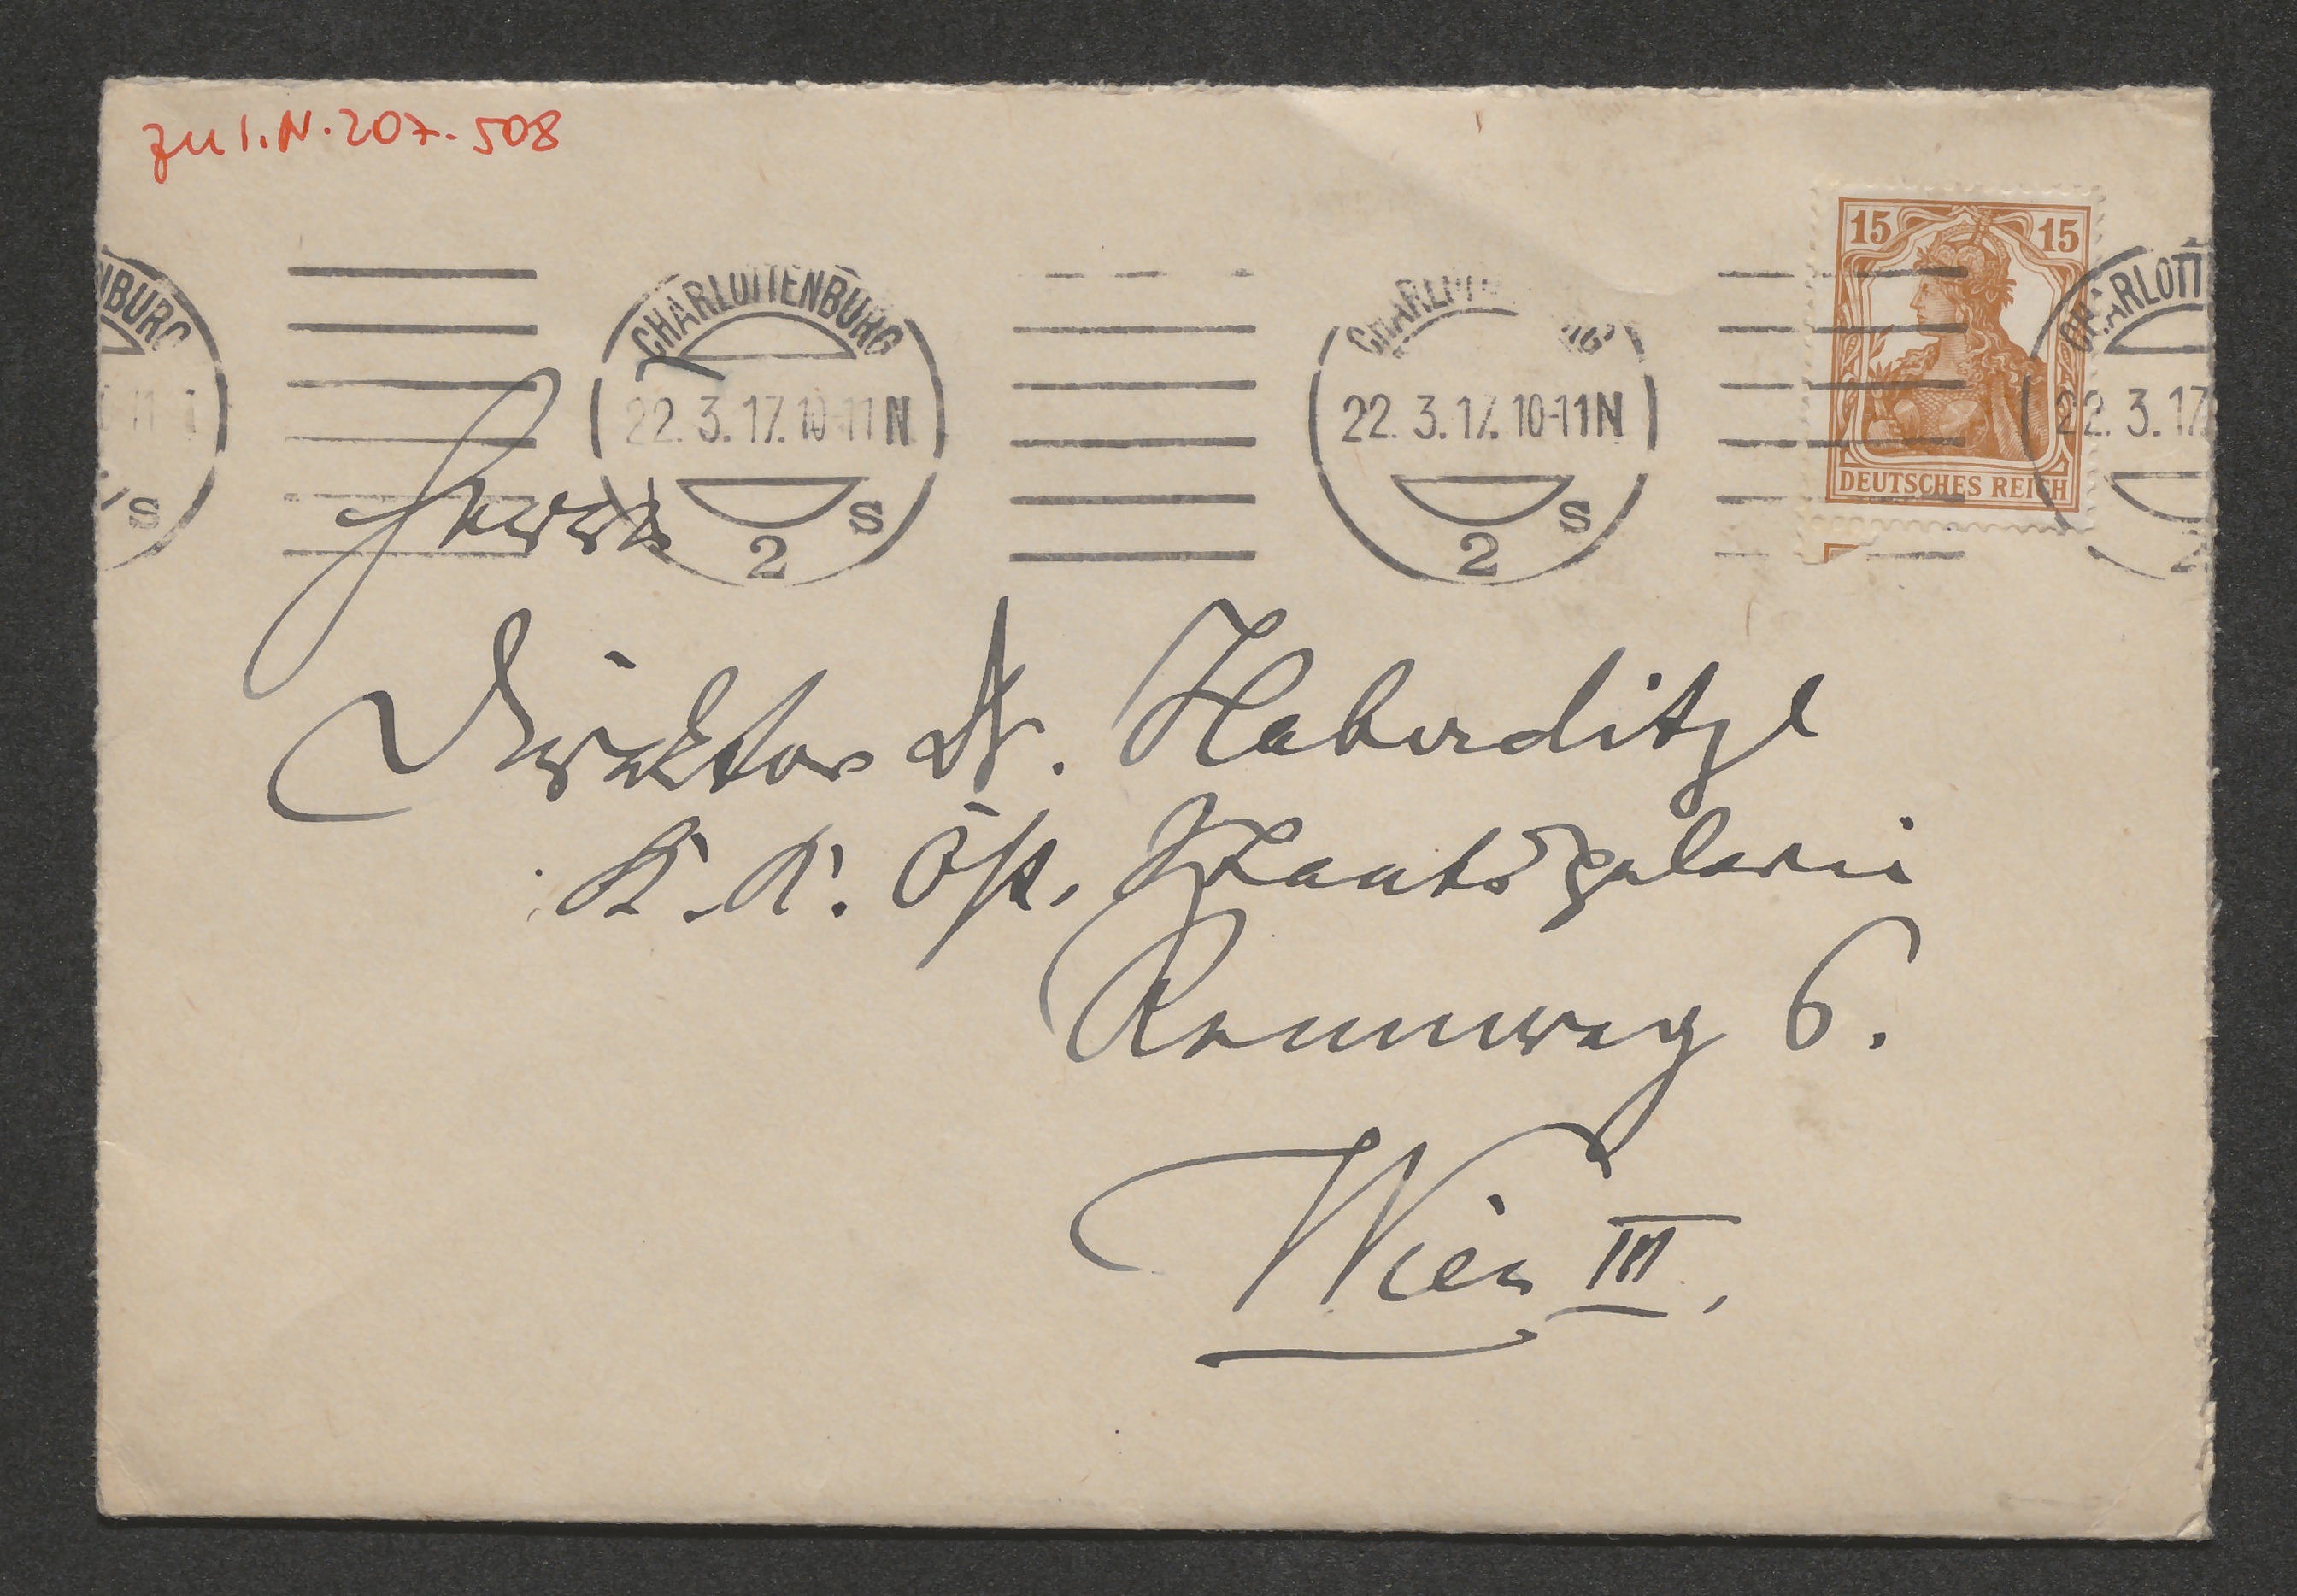 zu I.N. 207.508
15 15
DEUTSCHES REICH
CHARLOTTENBURG
22.3.17.10-11N
2 s
CHARL
22.3.17.10-11N
2 s
CHARLOTT
22.3.17
2
NBURG
s
Herrn
Direktor Dr. Haberditzl
K. K. Öst. Staatsgalerie
Rennweg 6.
Wien III.